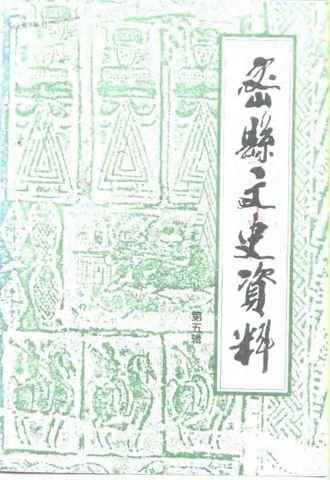 密縣文史資料
第五辑